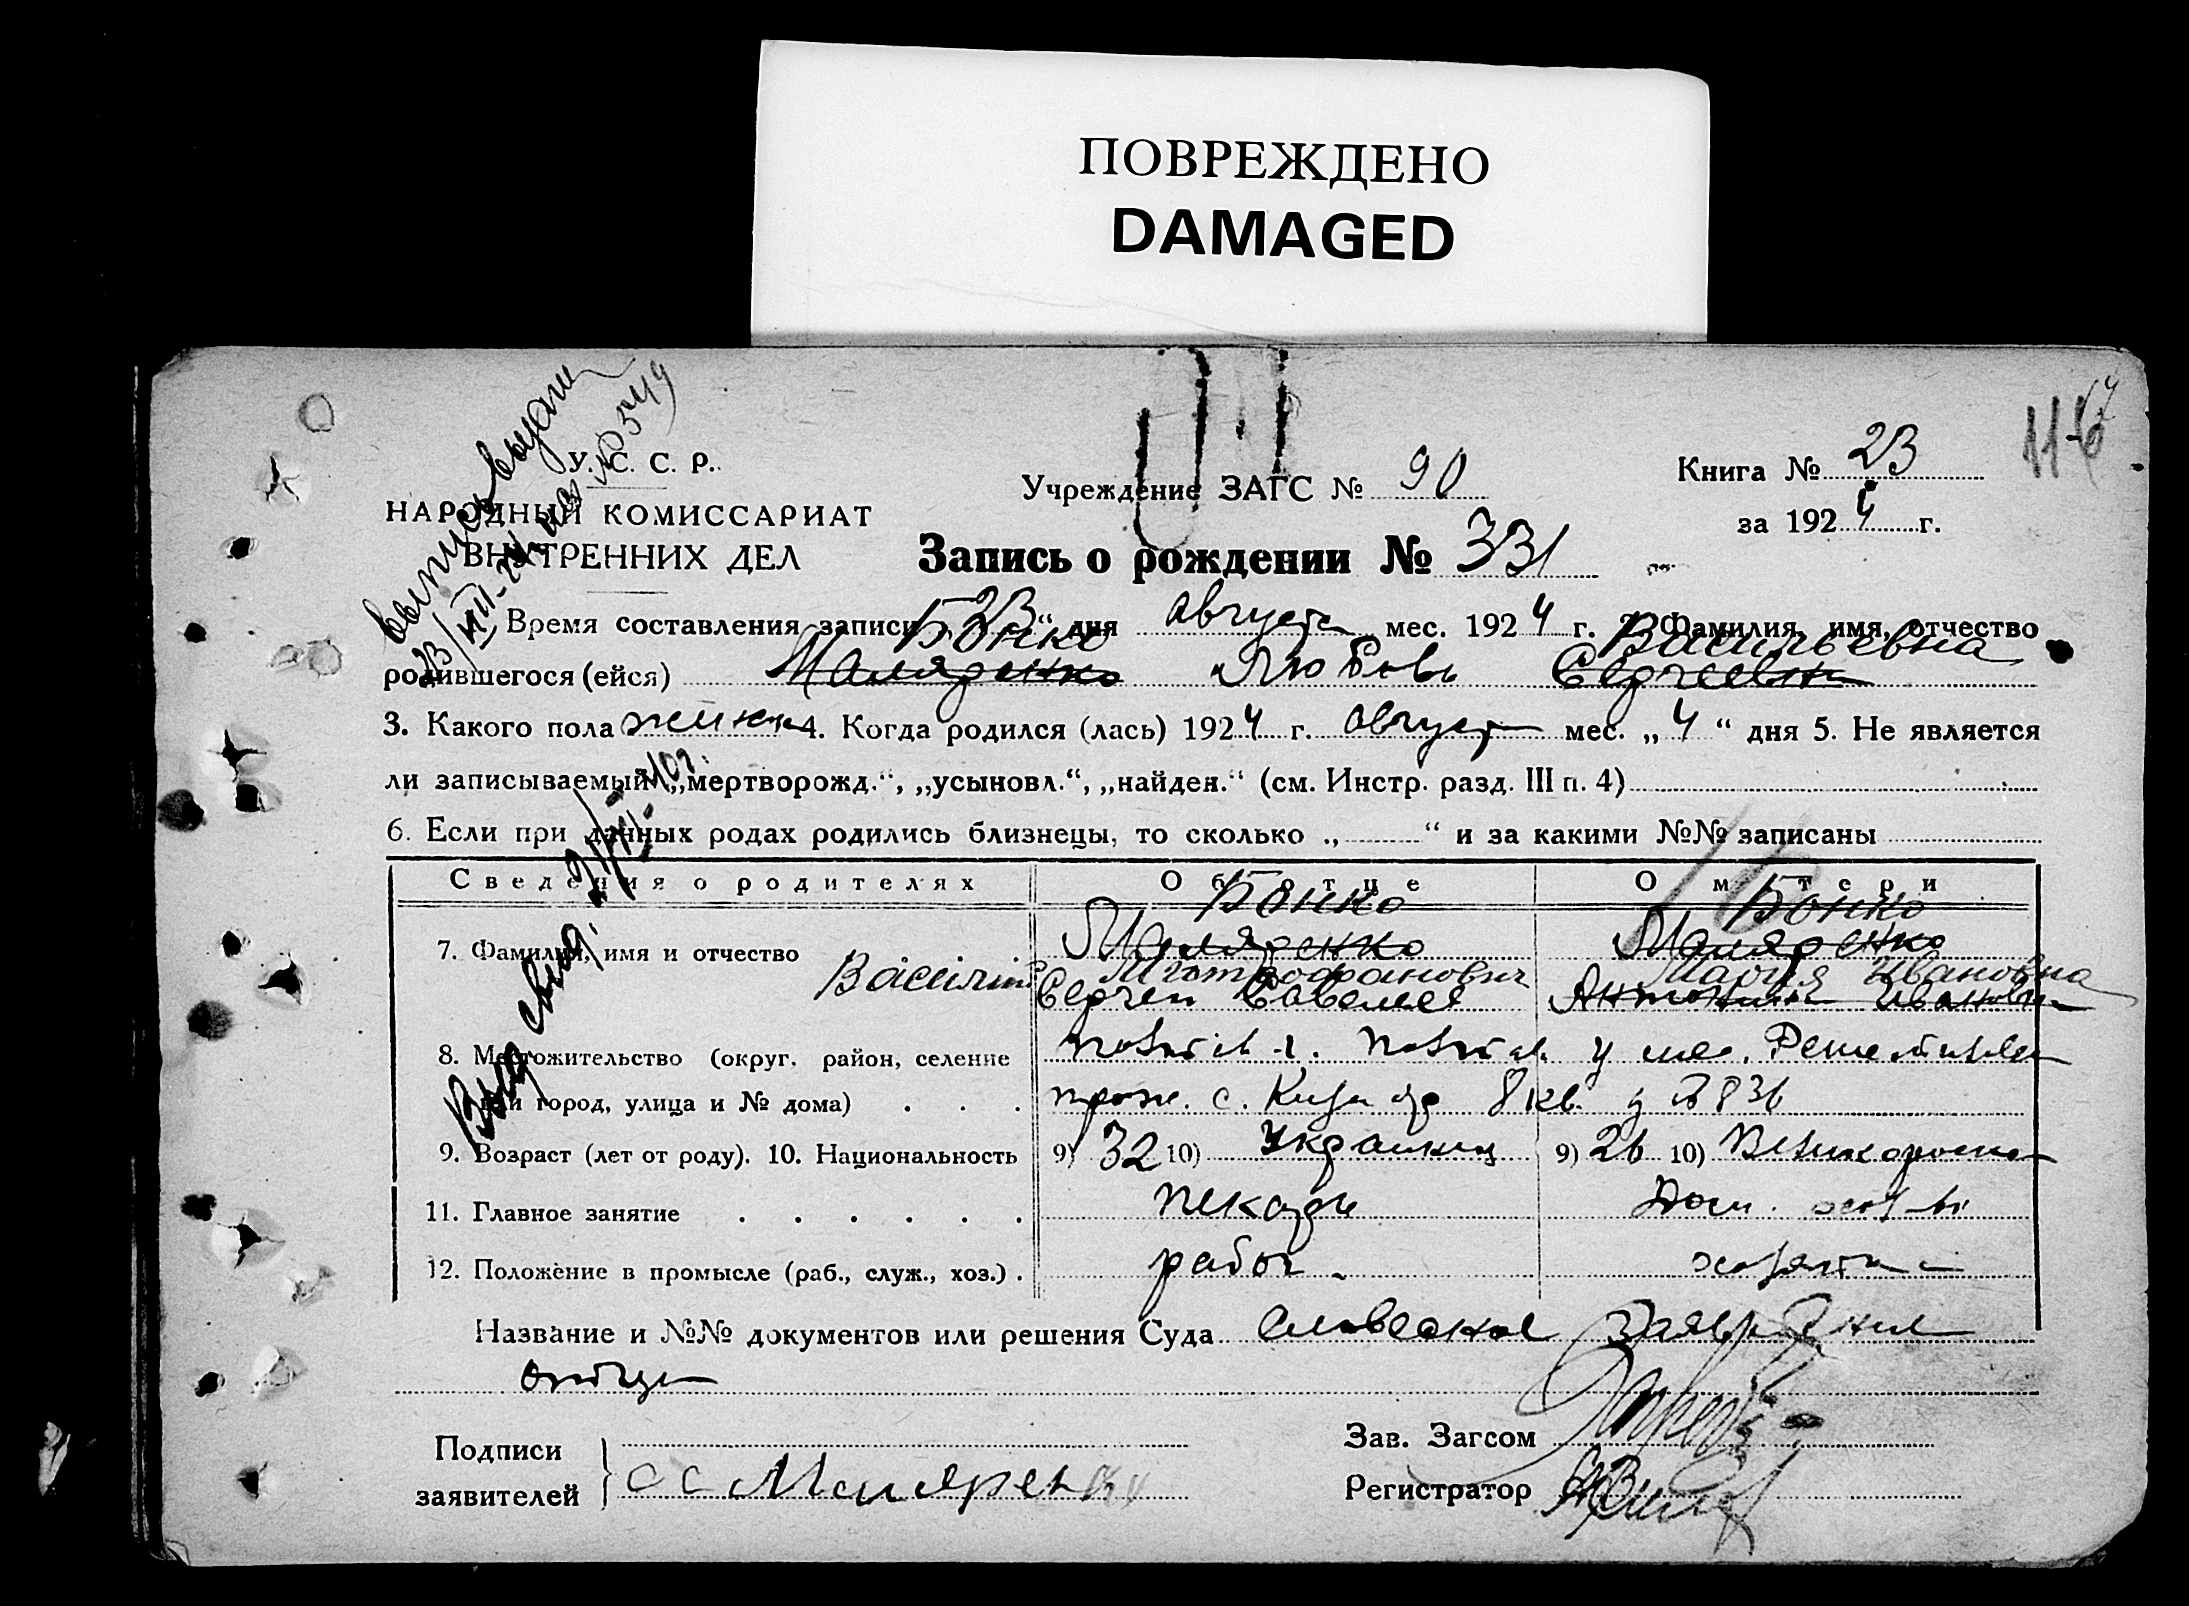 ПОВРЕЖДЕНО
DAMAGED
116
выпись выдана
23/VIII-24 № 549
У. С. С. Р.
НАРОДНЫЙ КОМИССАРИАТ
ВНУТРЕННИХ ДЕЛ
Учреждение ЗАГС № 90
Книга № 23
за 1924 г.
Запись о рождении № 331
Время составления записи „23“ дня августа мес. 1924 г. 2. Фамилия, имя, отчество
Бонко Васильевна
родившегося (ейся) Маляренко Любовь Сергеевна
3. Какого пола женск 4. Когда родился (лась) 1924 г. август мес. „4“ дня 5. Не является
ли записываемый „мертворожд.“, „усыновл.“, „найден.“ (см. Инстр. разд. III п. 4)
6. Если при данных родах родились близнецы, то сколько „ “ и за какими №№ записаны
Сведения о родителях Об отце О матери
Бонко Бонко
Маляренко Маляренко
7. Фамилия, имя и отчество Василий Митрофанович Мария Ивановна
Сергей Савелиев Антонина Ивановна
8. Местожительство (округ, район, селение
или город, улица и № дома) . . . 8 кв.
9. Возраст (лет от роду). 10. Национальность 9) 32 10) Украинец 9) 26 10) Великоросска
11. Главное занятие . . . . . . пекарь Дом. хоз-во
12. Положение в промысле (раб., служ., хоз.) . рабоч. хозяйка
Название и №№ документов или решения Суда словесное заявление
отца
Подписи
заявителей
С С Маляренко
Зав. Загсом
Регистратор